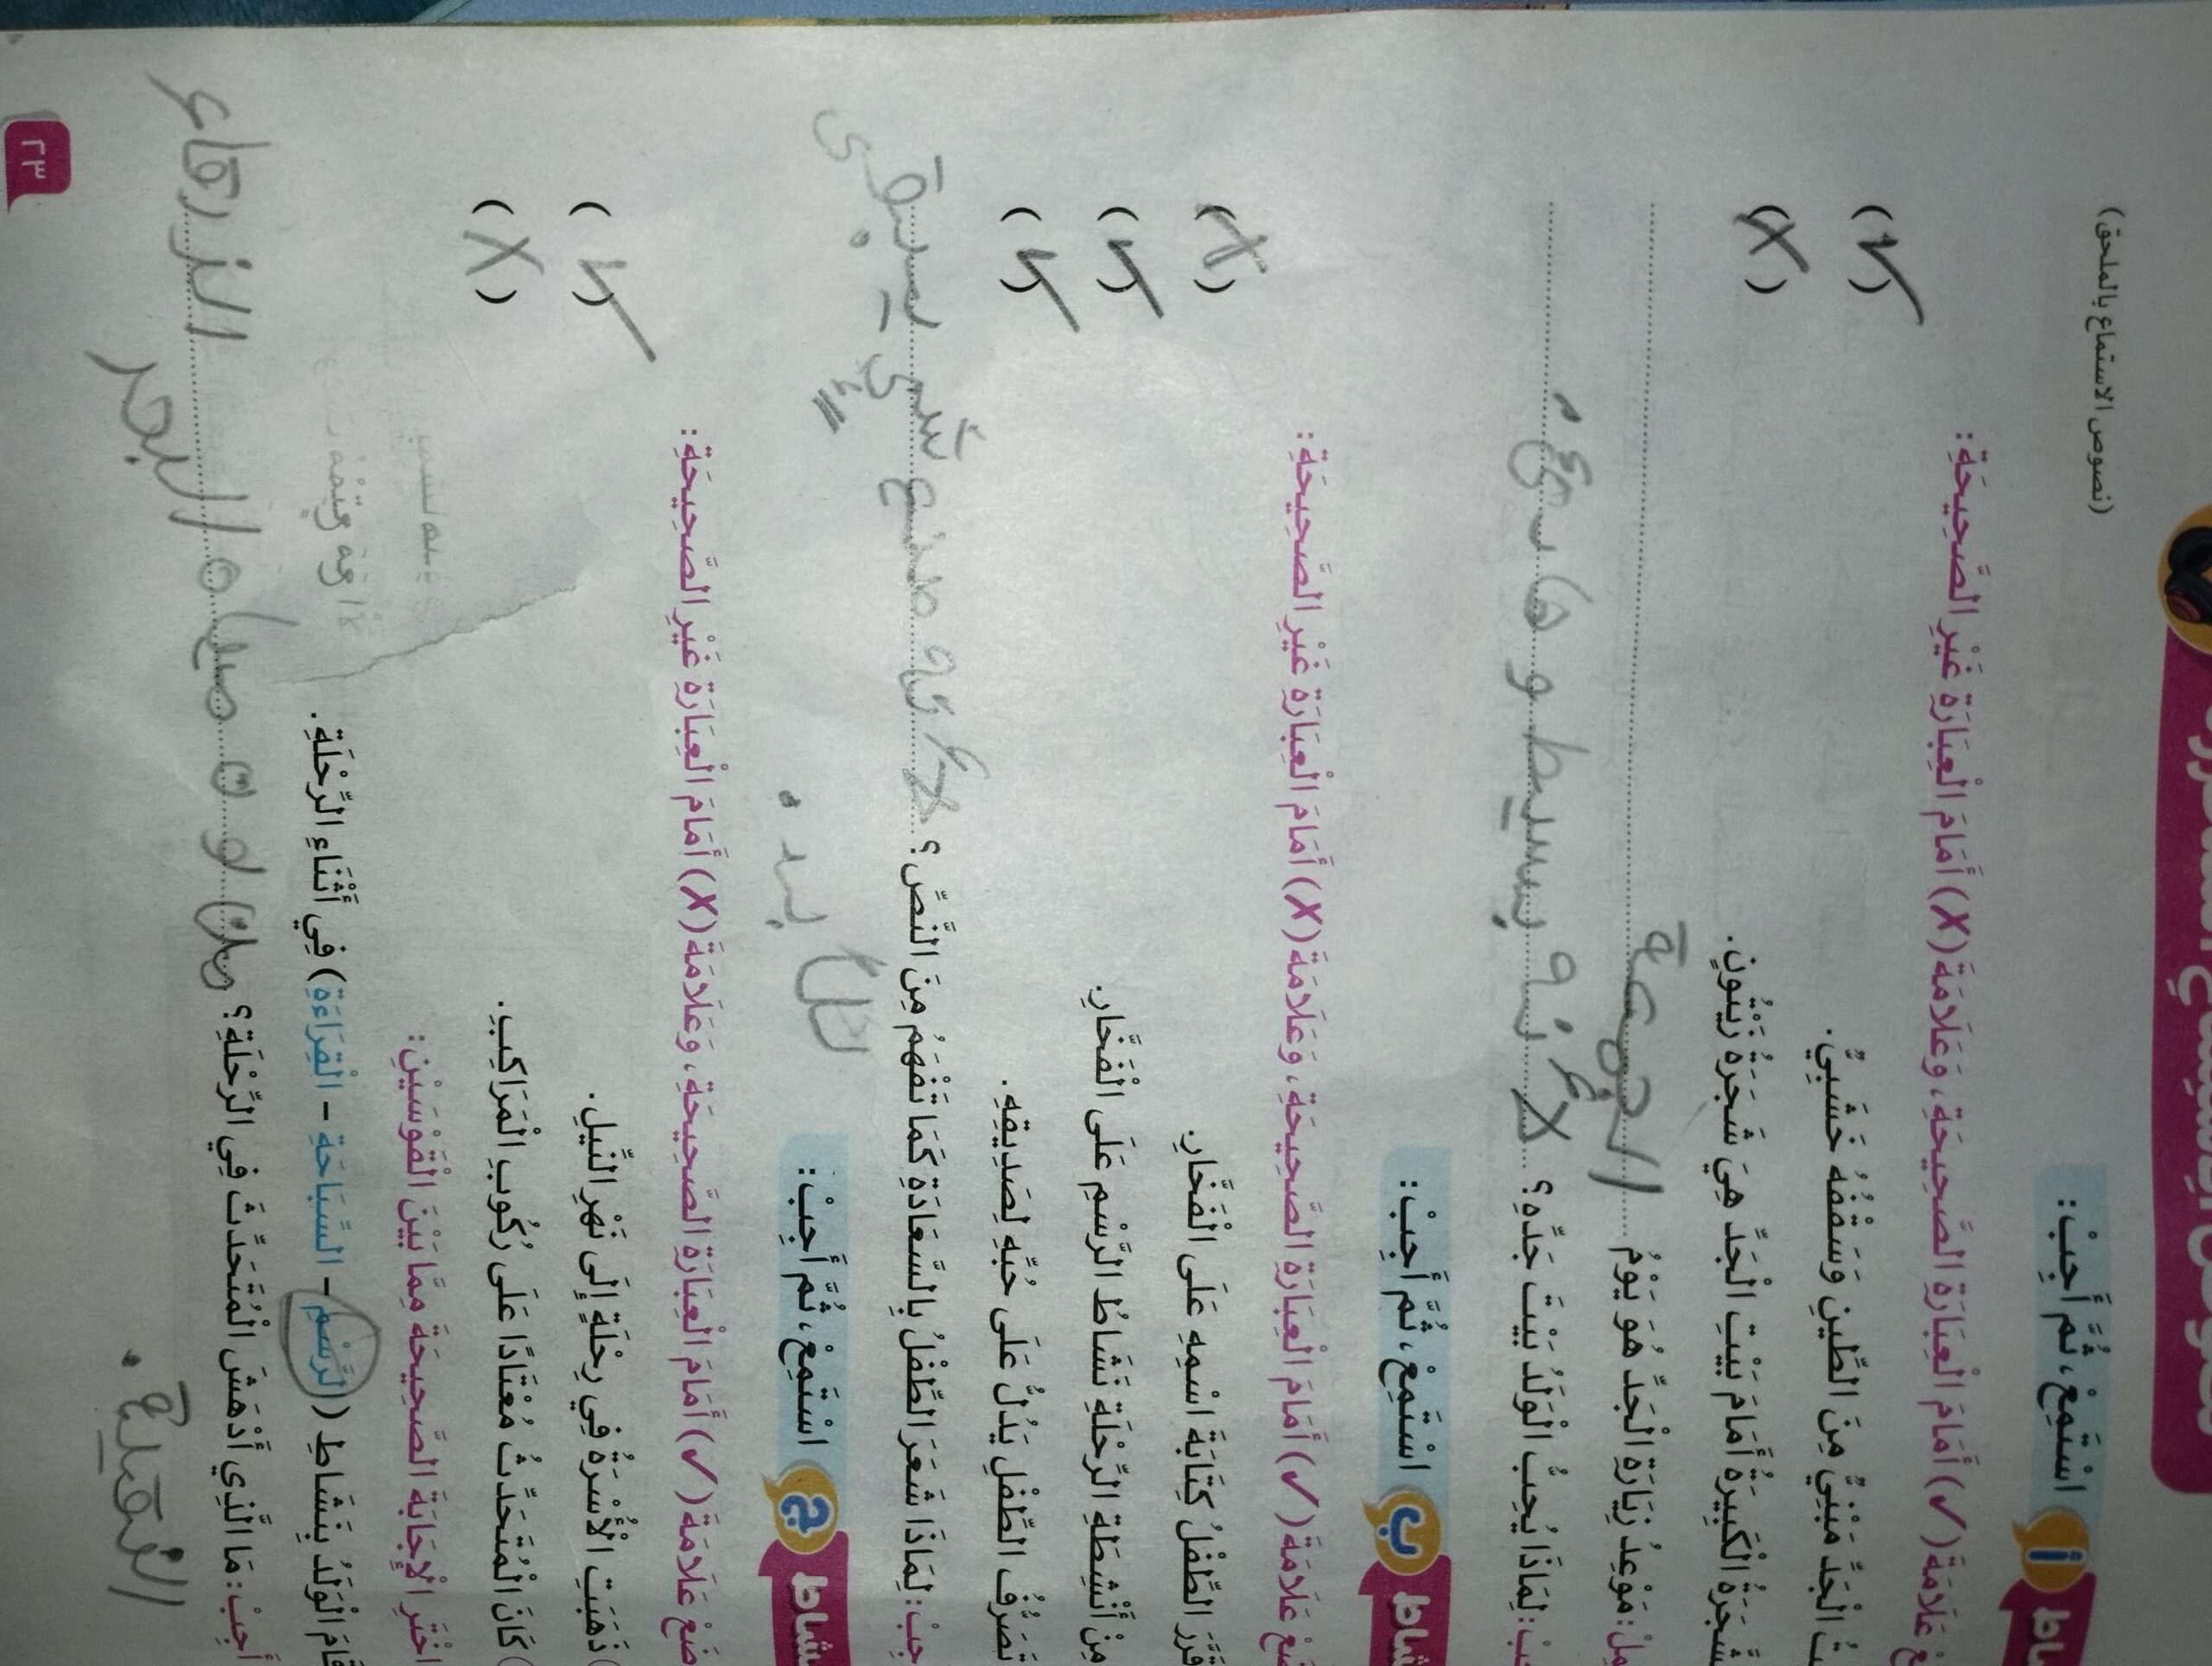 (نصوص الاستماع بالملحق)
أ اسْتَمِعْ، ثُمَّ أَجِبْ:
عَلَامَة (✓) أَمَامَ الْعِبَارَةِ الصَّحِيحَةِ، وَعَلَامَة (✗) أَمَامَ الْعِبَارَةِ غَيْرِ الصَّحِيحَةِ:
الْجَدِّ مَبْنِيٌّ مِنَ الطِّينِ وَسَقْفُهُ خَشَبِيٌّ. (✓)
الْكَبِيرَةُ أَمَامَ بَيْتِ الْجَدِّ هِيَ شَجَرَةُ زَيْتُونٍ. (✗)
مَوْعِدُ زِيَارَةِ الْجَدِّ هُوَ يَوْمُ الجمعة
لِمَاذَا يُحِبُّ الْوَلَدُ بَيْتَ جَدِّهِ؟ لأنه بسيط و هادئ.
نشاط ب اسْتَمِعْ، ثُمَّ أَجِبْ:
ضَعْ عَلَامَة (✓) أَمَامَ الْعِبَارَةِ الصَّحِيحَةِ، وَعَلَامَة (✗) أَمَامَ الْعِبَارَةِ غَيْرِ الصَّحِيحَةِ:
قَرَّرَ الطِّفْلُ كِتَابَةَ اسْمِهِ عَلَى الْفَخَّارِ. (✗)
مِنْ أَنْشِطَةِ الرِّحْلَةِ نَشَاطُ الرَّسْمِ عَلَى الْفَخَّارِ. (✓)
تَصَرُّف الطِّفْلِ يَدُلُّ عَلَى حُبِّهِ لِصَدِيقِهِ. (✓)
لِمَاذَا شَعَرَ الطِّفْلُ بِالسَّعَادَةِ كَمَا تَفْهَمُ مِنَ النَّصِّ؟ لأنه صنع شيء يبقى
للأبد.
نشاط ج اسْتَمِعْ، ثُمَّ أَجِبْ:
ضَعْ عَلَامَة (✓) أَمَامَ الْعِبَارَةِ الصَّحِيحَةِ، وَعَلَامَة (✗) أَمَامَ الْعِبَارَةِ غَيْرِ الصَّحِيحَةِ:
ذَهَبَتِ الْأُسْرَةُ فِي رِحْلَةٍ إِلَى نَهْرِ النِّيلِ. (✓)
كَانَ الْمُتَحَدِّثُ مُعْتَادًا عَلَى رُكُوبِ الْمَرَاكِبِ. (✗)
اخْتَرِ الْإِجَابَةَ الصَّحِيحَةَ مِمَّا بَيْنَ الْقَوْسَيْنِ:
قَامَ الْوَلَدُ بِنَشَاطِ (الرَّسْمِ - السِّبَاحَةِ - الْقِرَاءَةِ) فِي أَثْنَاءِ الرِّحْلَةِ.
أَجِبْ: مَا الَّذِي أَدْهَشَ الْمُتَحَدِّثَ فِي الرِّحْلَةِ؟ لون مياه البحر الزرقاء
النقية.
٢٣